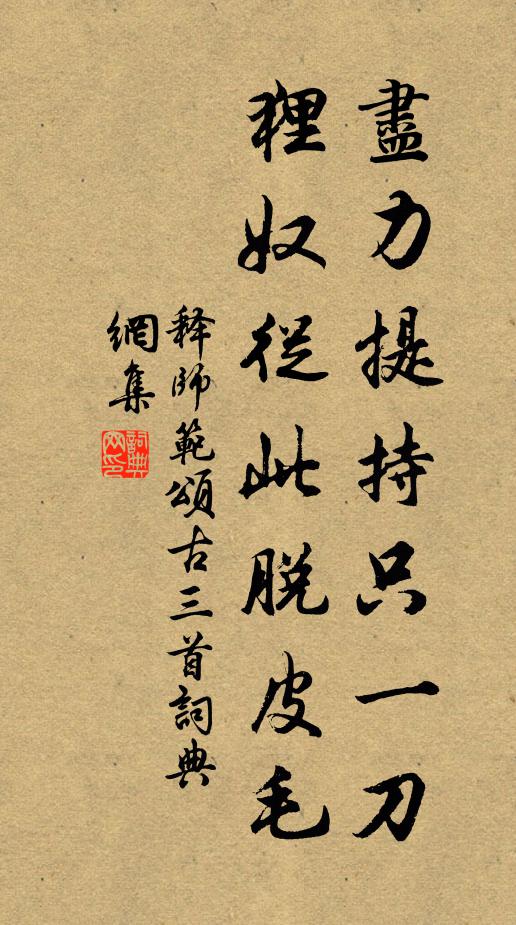 盡力提持只一刀
狸奴從此脫皮毛
释師範頌古三首詞典
網集
詞典
网印